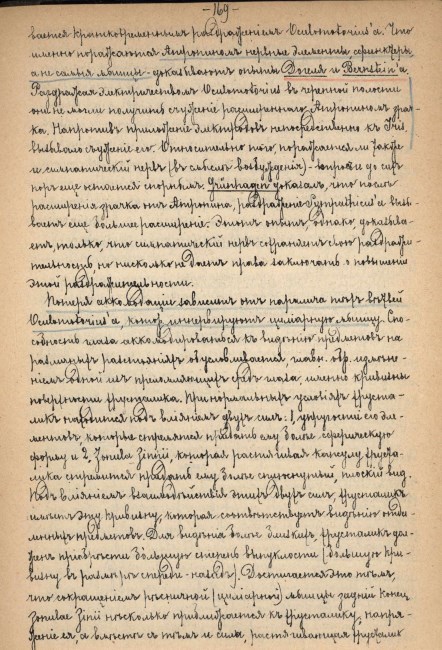 -169-
вается кратковременнымъ раздраженіемъ Oculomotorius'а. Что
именно поражаются Атропиномъ нервные элементы сфинктера,
а не самыя мышцы - доказываютъ опыты Догеля и Bernstein'a.
Раздражая электричествомъ Oculomotorius въ черепной полости
они не могли получить съуженіе расширеннаго Атропиномъ зрач-
ка. Напротивъ приложеніе электродовъ непосредственно къ Iris,
вызывало съуженіе его. Относительно того, поражается ли также
и симпатическій нервъ (въ смыслѣ возбужденія) - вопросъ до сихъ
поръ еще остается спорнымъ. Grünhagen доказалъ, что послѣ
расширенія зрачка отъ Атропина, раздраженіе Sympathicus'а вызы-
ваетъ еще большее расширеніе. Этотъ опытъ однако доказыва-
етъ только, что симпатическій нервъ сохраняетъ свою раздражи-
тельность, но нисколько не даетъ права заключать о повышеніи
этой раздражительности.
Потеря аккомодаціи зависитъ отъ паралича тѣхъ вѣтвей
Oculomotorius'а, котор. иннервируютъ циліарную мышцу. Спо-
собность глаза аккомодироваться къ видѣнію предметовъ на
различныхъ разстояніяхъ обусловливается, главн. обр. измѣне-
ніемъ одной изъ преломляющихъ средъ глаза, именно кривизны
поверхности хрусталика. При нормальныхъ условіяхъ хруста-
ликъ находится подъ вліяніемъ двухъ силъ: 1, упругости его эле-
ментовъ, которые стремятся придать ему болѣе сферическую
форму и 2, Zonula Zinii, которая растягивая капсулу хруста-
лика стремится придать ему болѣе сплюснутый, плоскій видъ.
Подъ вліяніемъ взаимодѣйствія этихъ двухъ силъ, хрусталикъ
имѣетъ эту кривизну, которая соотвѣтствуетъ видѣнію отда-
ленныхъ предметовъ. Для видѣнія болѣе близкихъ, хрусталикъ дол-
женъ пріобрѣсти большую степень выпуклости (большую кри-
визну въ размѣрѣ спереди-назадъ). Достигается это тѣмъ,
что сокращеніемъ рѣсничной (циліарной) мышцы задній конецъ
Zonulae Zinii нѣсколько приближается къ хрусталику, напря-
женіе ея, а вмѣстѣ съ тѣмъ и сила, растягивающая хрусталикъ